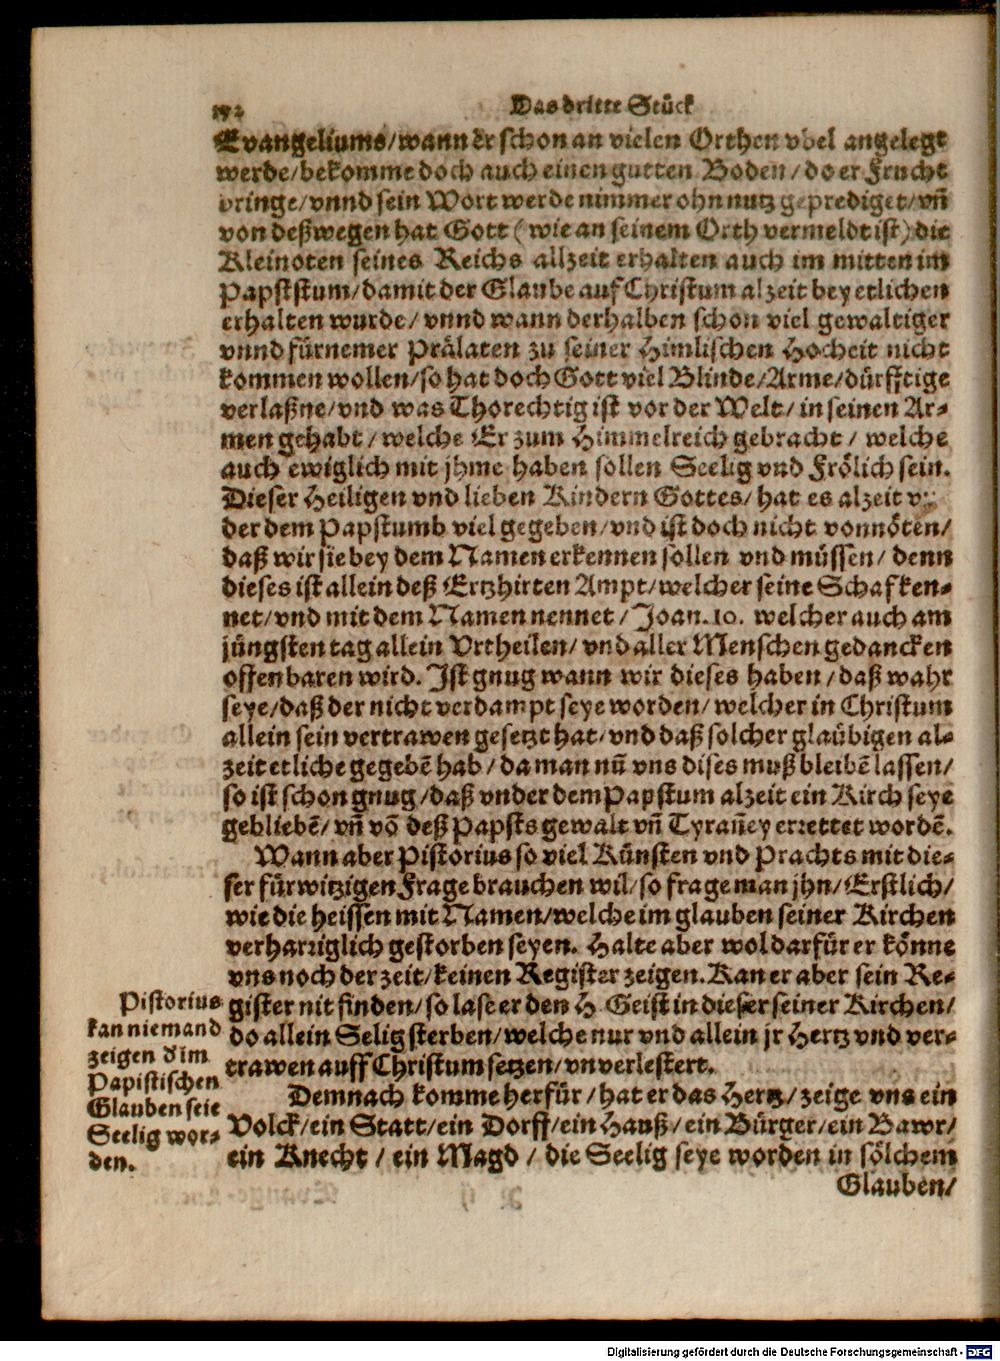 Das dritte Stück
Evangeliums/wann er schon an vielen Orthen vbel angelegt
werde/bekomme doch auch einen gutten Boden/do er Frucht
bringe/vnnd sein Wort werde nimmer ohn nutz geprediget/vñ
von deßwegen hat Gott (wie an seinem Orth vermeldt ist) die
Kleinoten seines Reichs allzeit erhalten auch im mitten im
Papststum/damit der Glaube auf Christum alzeit bey etlichen
erhalten wurde/vnnd wann derhalben schon viel gewaltiger
vnnd fürnemer Prälaten zu seiner Himlischen Hocheit nicht
kommen wollen/so hat doch Gott viel Blinde/Arme/dürfftige
verlaßne/vnd was Thorechtig ist vor der Welt/in seinen Ar-
men gehabt/welche Er zum Himmelreich gebracht/welche
auch ewiglich mit jhme haben sollen Seelig vnd Frölich sein.
Dieser Heiligen vnd lieben Kindern Gottes/hat es alzeit
der dem Papstumb viel gegeben/vnd ist doch nicht vonnöten/
daß wir sie bey dem Namen erkennen sollen vnd müssen/denn
dieses ist allein deß Ertzhirten Ampt/welcher seine Schaf ken-
net/vnd mit dem Namen nennet/Joan.10. welcher auch am
jüngsten tag allein Vrtheilen/vnd aller Menschen gedancken
offenbaren wird. Ist gnug wann wir dieses haben/daß wahr
seye/daß der nicht verdampt seye worden/welcher in Christum
allein sein vertrawen gesetzt hat/vnd daß solcher glaübigen al-
zeit etliche gegebē hab/da man nū vns dises muß bleibē lassen/
so ist schon gnug/daß vnder dem Papstum alzeit ein Kirch seye
gebliebē/vñ vō deß Papsts gewalt vñ Tyrañey errettet wordē.
Wann aber Pistorius so viel Künsten vnd Prachts mit die-
ser fürwitzigen Frage brauchen wil/so frage man jhn/Erstlich/
wie die heissen mit Namen/welche im glauben seiner Kirchen
verharriglich gestorben seyen. Halte aber wol darfür er könne
vns noch der zeit/keinen Register zeigen. Kan er aber sein Re-
gister nit finden/so lase er den H. Geist in dieser seiner Kirchen/
do allein Selig sterben/welche nur vnd allein jr Hertz vnd ver-
trawen auff Christum setzen/vnverlestert.
Pistorius
kan niemand
zeigen d im
Papistischen
Glauben seie
Seelig wor-
den.
Demnach komme herfür/hat er das Hertz/zeige vns ein
Volck/ein Statt/ein Dorff/ein Hauß/ein Bürger/ein Bawr/
ein Knecht/ein Magd/die Seelig seye worden in sölchem
Glauben/
Digitalisierung gefördert durch die Deutsche Forschungsgemeinschaft - DFG